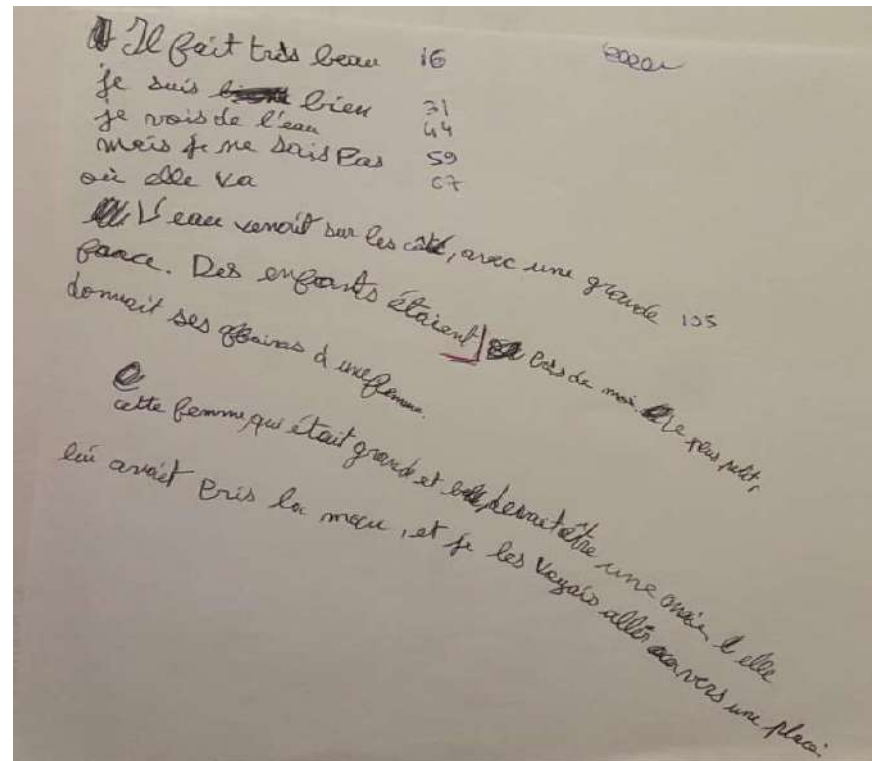 Il fait très beau 16
je suis bien 31
je vois de l'eau 44
mais je ne sais pas 59
où elle va 67
L'eau venait sur les côté, avec une grande 105
force. Des enfants étaient près de moi. Le plus petit,
donnait ses affaires à une femme.
cette femme, qui était grande et devait être une elle
lui avait pris la main, et je les voyais aller vers une place.